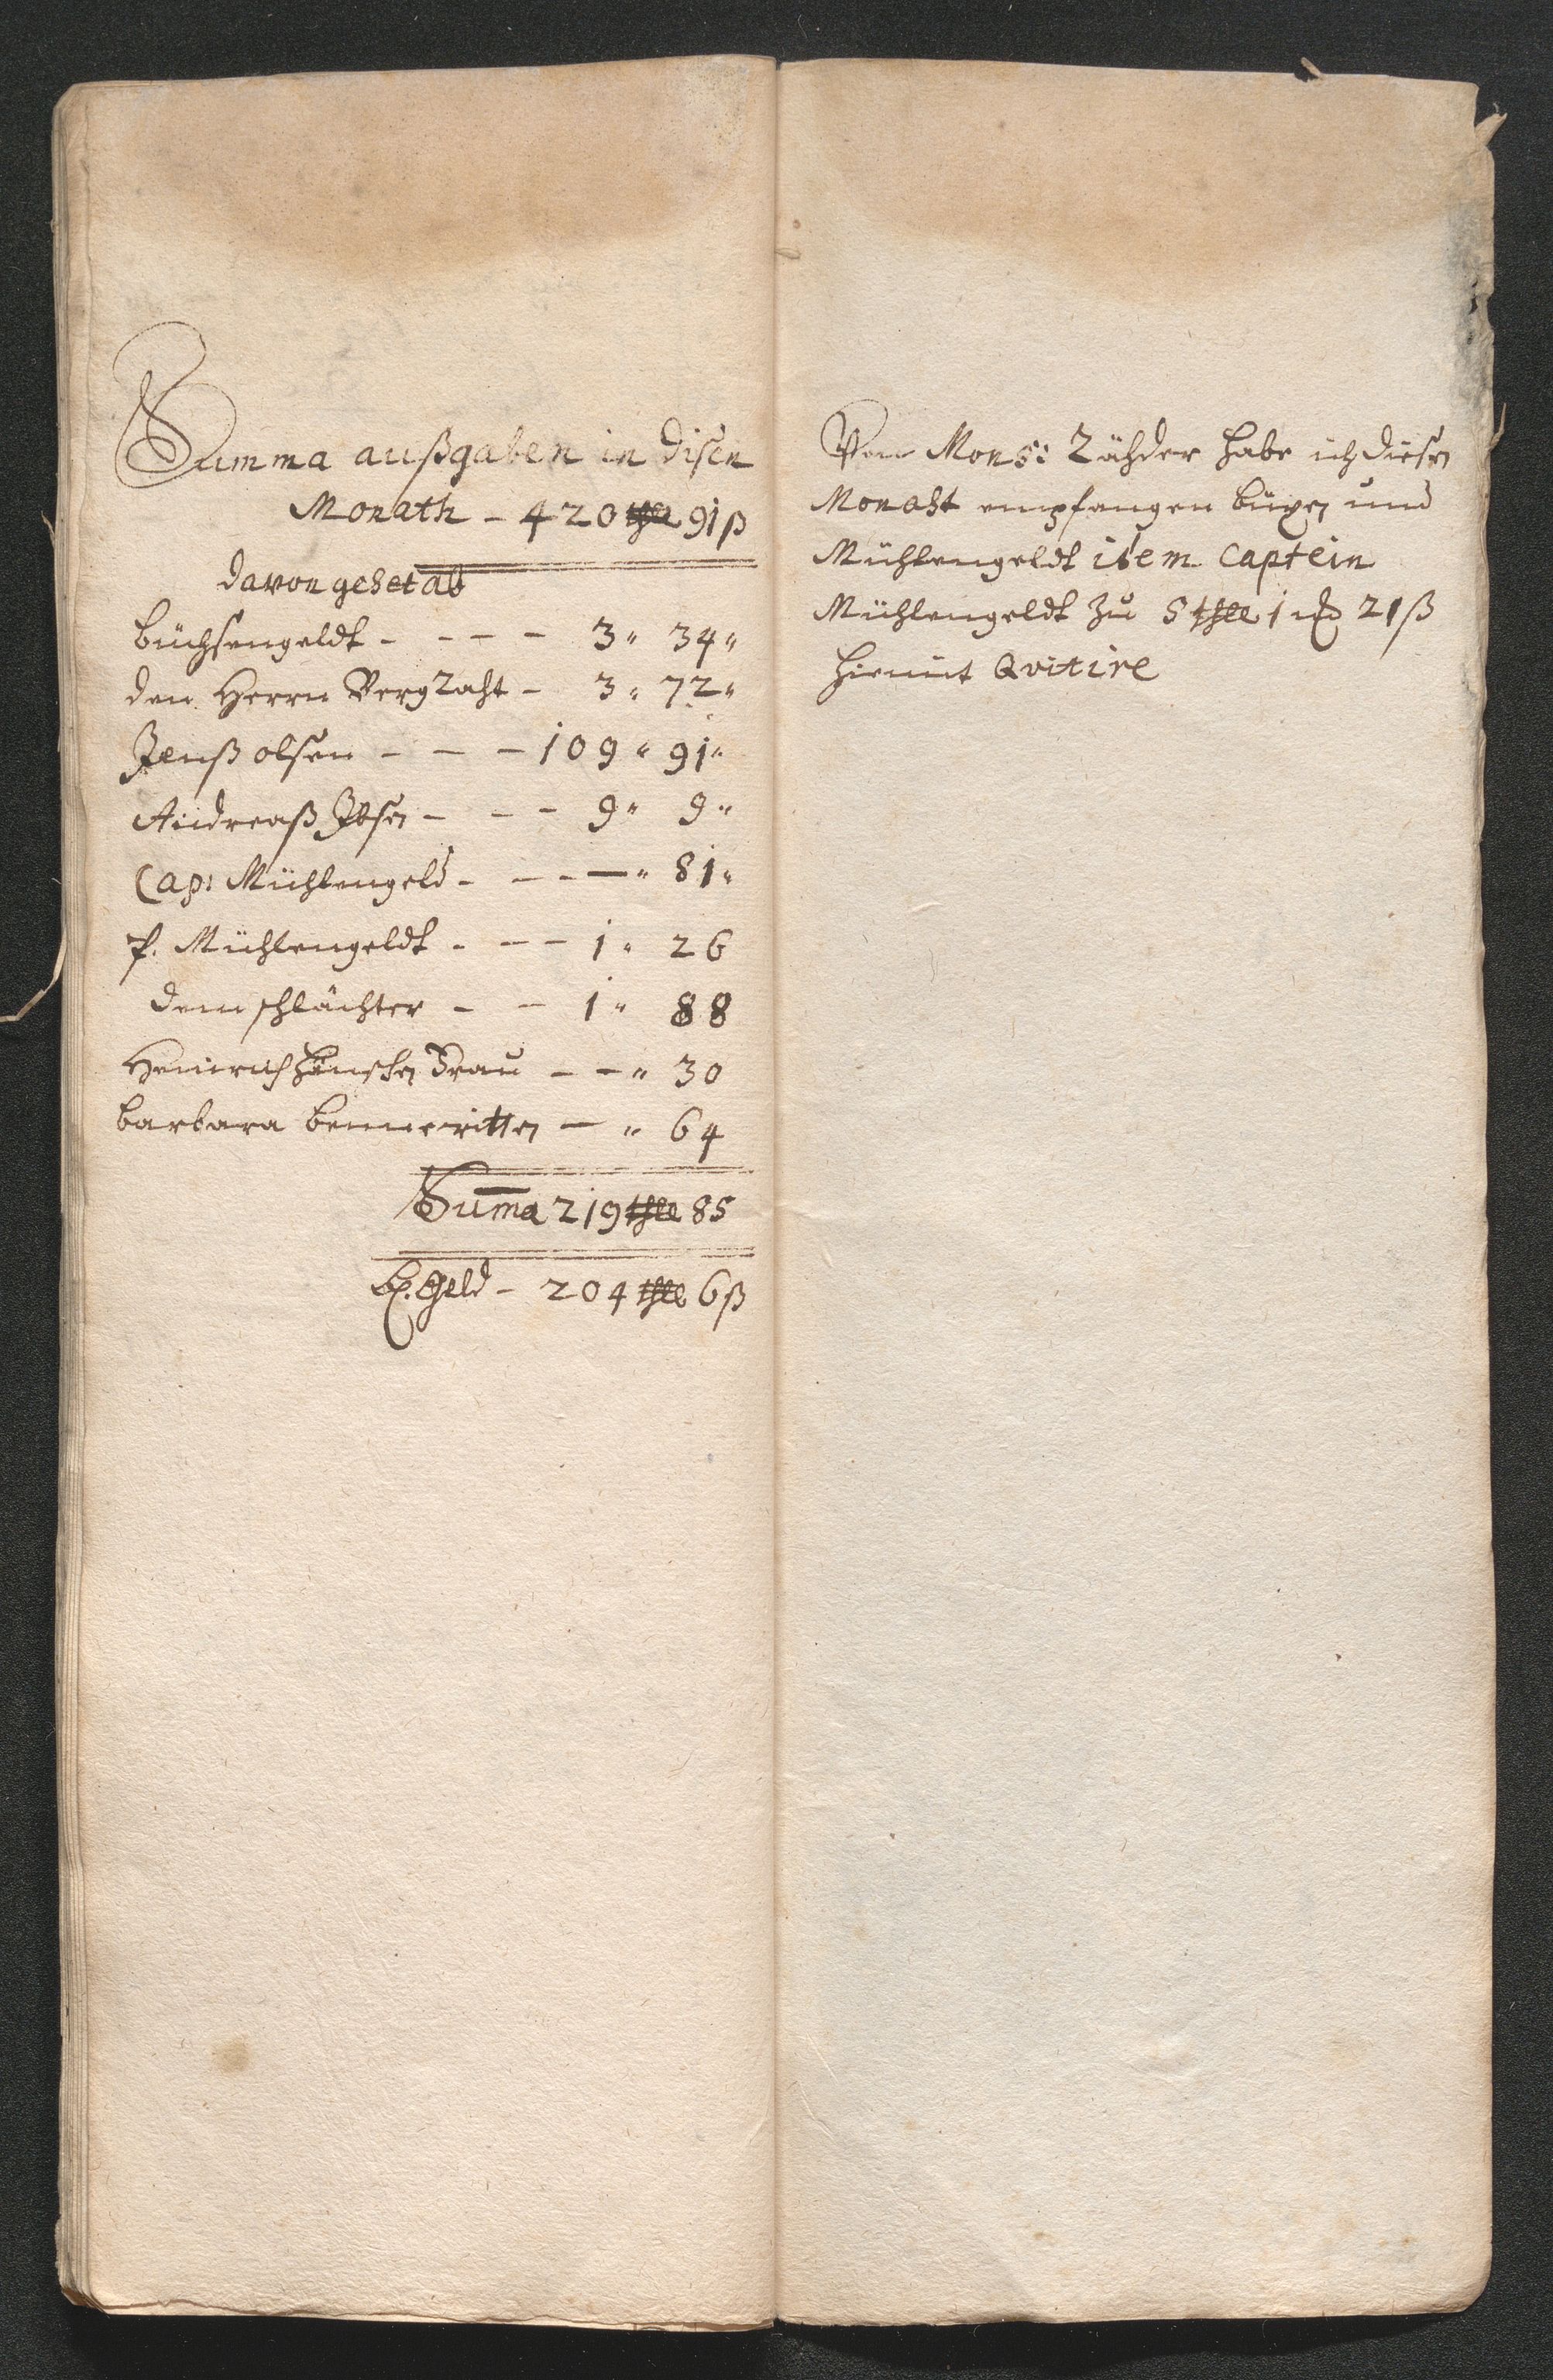 Summa außgaben in disen
Monath - 420 thll 91 ß
davon gehet ab
büchsengeldt - - - - 3 " 34 "
den Herrn Bergraht - 3 " 72 "
Jenß olsen - - - 109 " 91 "
Andreaß Ibsen - - - 9 " 9 "
Cap: Mühlengeld - - - — " 81 "
p. Mühlengeldt - - - 1 " 26
dem schlächter - - 1 " 88
Heinrich Frau - - " 30
barbara — " 64
Suma 219 thll 85
Geld - 204 thll 6 ß
Von Mons: Rähder habe ich diesen
Monaht empfangen büxen und
Mühlengeldt item Captein
Mühlengeldt zu 5 thll 1 21 ß
hiemit Qvitire